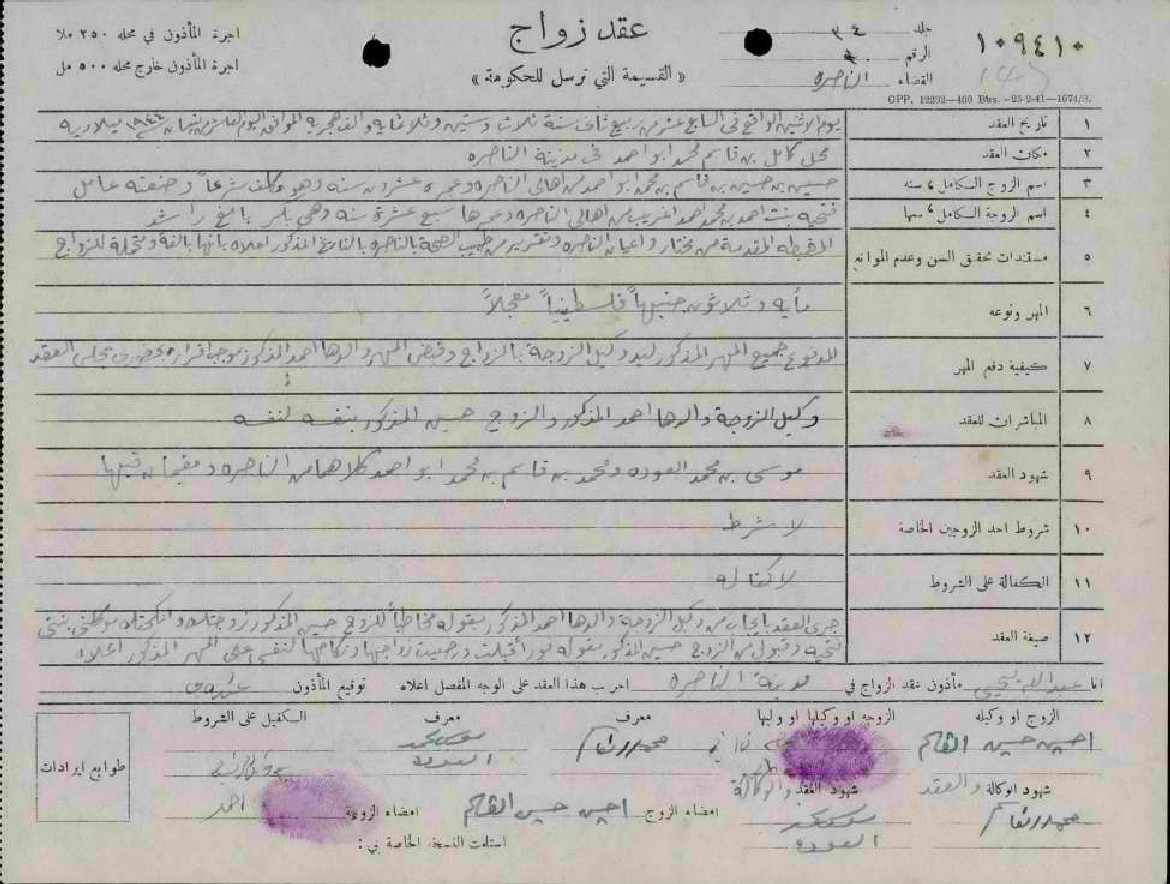 اجرة المأذون في محله ٢٥٠ ملا
اجرة المأذون خارج محله ٥٠٠ مل
عقد زواج
« القسيمة التي ترسل للحكومة »
جلد ٣٤
الرقم ٩٠
القضاء الناصره
١٠٩٤١٠
GPP. 12292—400 Bks.—25-2-41—1674/S.
١ تاريخ العقد يوم الاثنين الواقع في السابع عشر من ربيع ثاني سنة ثلاث وستين وثلاثمايه والف هجريه الموافق اليوم العاشر من نيسان سنة ١٩٤٤ ميلاديه
٢ مكان العقد محل كامل بن قاسم محمد ابو احمد في مدينة الناصره
٣ اسم الزوج الكامل، سنه حسين بن حسين بن قاسم بن محمد ابو احمد من اهالي الناصره وعمره عشرون سنه وهو مكلف شرعاً وصنعته عامل
٤ اسم الزوجة الكامل، سنها فتحيه بنت احمد بن محمد احمد من اهالي الناصره وعمرها سبع عشرة سنه وهي بكر بالغ راشد
٥ مستندات تحقق السن وعدم الموانع المضبطه المقدمة من مختار واعيان الناصره وتقرير من طبيب الصحة بالناصره بالتاريخ المذكور اعلاه بانها بالغة ومتحملة للزواج
٦ المهر ونوعه مأيه وثلاثون جنيهاً فلسطينياً معجلاً
٧ كيفية دفع المهر المدفوع جميع المهر المذكور ليد وكيل الزوجة بالزواج وقبض المهر والدها احمد المذكور بموجب اقراره بحضوري بمجلس العقد
٨ المباشران للعقد وكيل الزوجة والدها احمد المذكور والزوج حسين المذكور بنفسه لنفسه
٩ شهود العقد موسى بن محمد العوده ومحمد بن قاسم بن محمد ابو احمد كلاهما من الناصره ومقيمان فيها
١٠ شروط احد الزوجين الخاصة لا شرط
١١ الكفالة على الشروط لا كفاله
١٢ صيغة العقد جرى العقد بايجاب من وكيل الزوجة والدها احمد المذكور بقوله مخاطباً للزوج حسين المذكور زوجتك وانكحتك موكلتي بنتي
فتحيه وقبول من الزوج حسين المذكور بقوله فوراً قبلت ورضيت زواجها ونكاحها لنفسي على المهر المذكور اعلاه
انا مأذون عقد الزواج في مدينة الناصره اجريت هذا العقد على الوجه المفصل اعلاه توقيع المأذون
الزوج او وكيله الزوجه او وكيلها او وليها معرف معرف الكفيل على الشروط
حسين القاسم محمد قاسم موسى محمد
العوده
شهود الوكالة والعقد شهود العقد والوكالة
محمد قاسم موسى محمد
العوده
امضاء الزوج حسين القاسم امضاء الزوجة احمد
استلمت النسخة الخاصة بي :
طوابع ايرادات